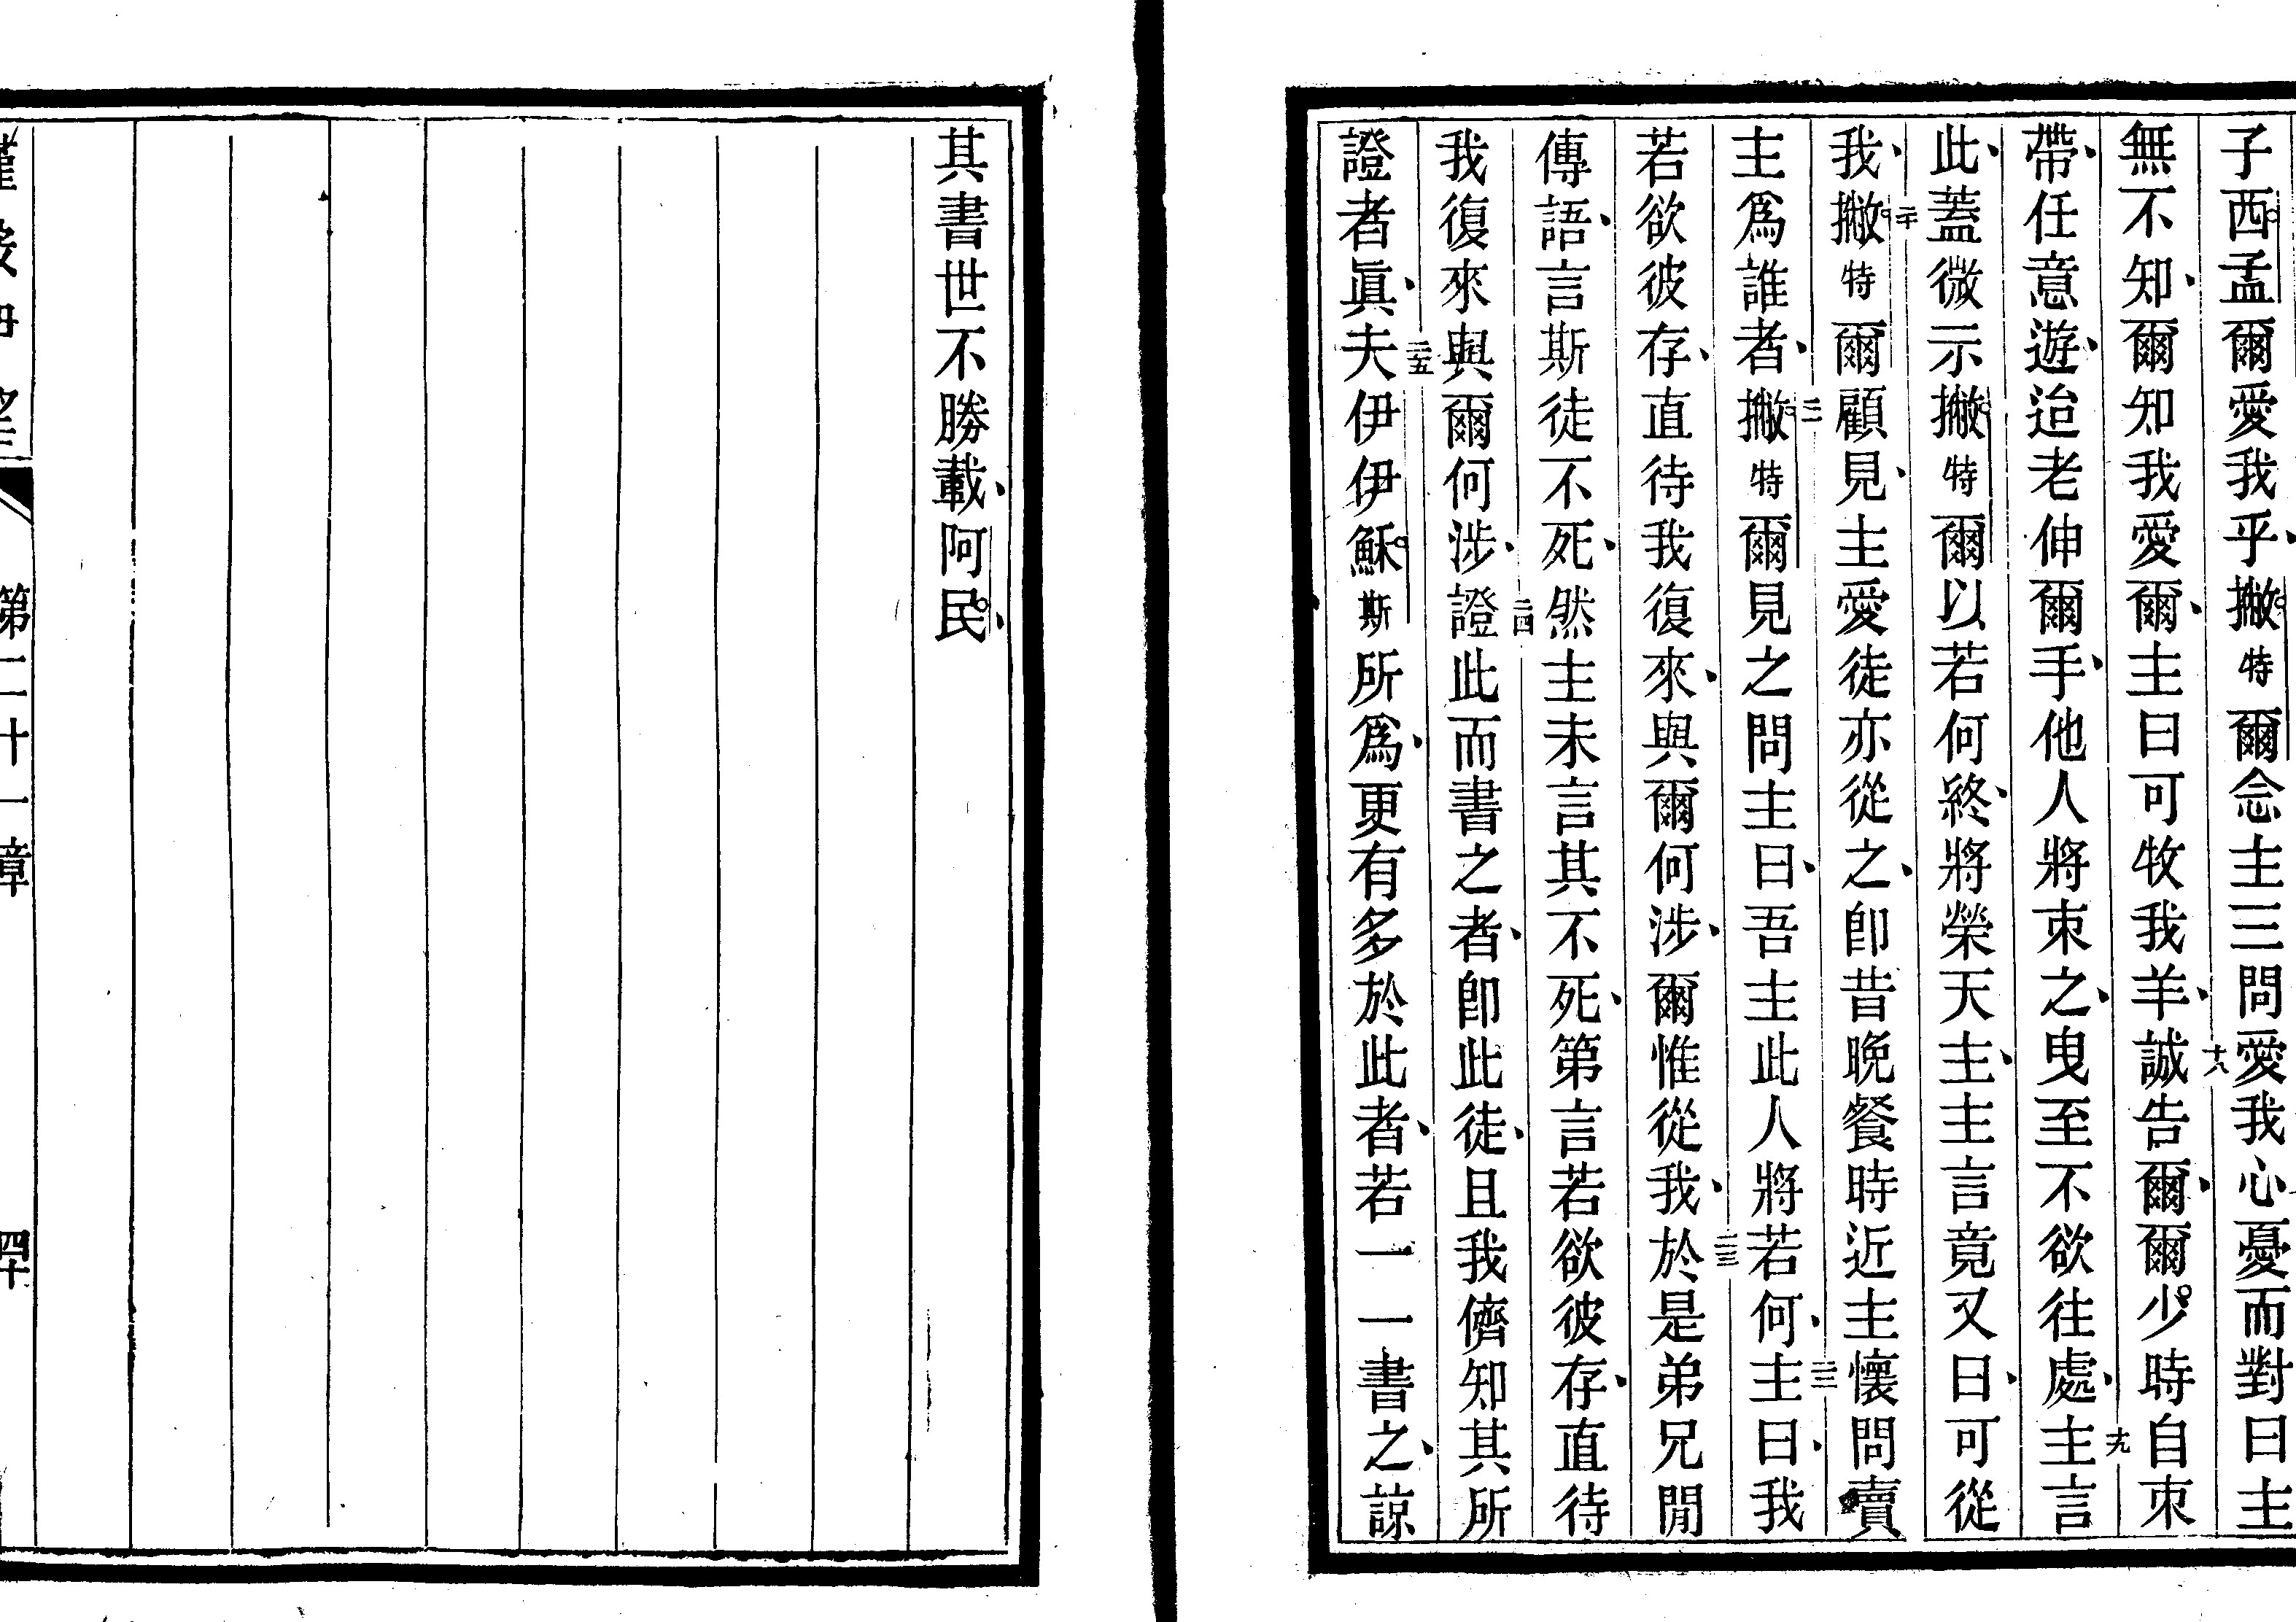 子西孟爾愛我乎、撇特爾念主三問愛我心憂而對曰主
無不知、爾知我愛爾、主曰可牧我羊、十八誠告爾、爾少時自束
帶、任意遊、迨老伸爾手、他人將束之、曳至不欲往處、十九主言
此、蓋微示撇特爾以若何終、將榮天主、主言竟又曰、可從
我、二十撇特爾顧見、主愛徒亦從之、卽昔晚餐時近主懷問賣
主爲誰者、二一撇特爾見之問主曰、吾主此人將若何、二二主曰、我
若欲彼存、直待我復來、與爾何涉、爾惟從我、二三於是弟兄閒
傳語、言斯徒不死、然主未言其不死、第言若欲彼存、直待
我復來與爾何涉、二四證此而書之者、卽此徒、且我儕知其所
證者眞、二五夫伊伊穌斯所爲、更有多於此者、若一一書之、諒
其書世不勝載、阿民、
第二十一章
四十